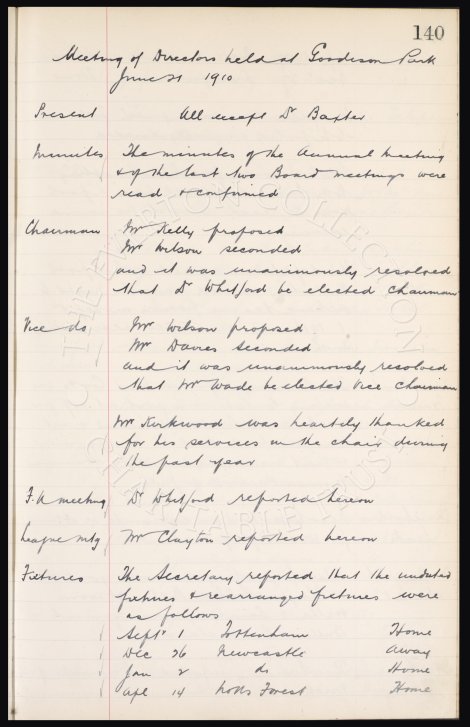 140
Meeting of Directors held at Goodison Park
June 21 1910
Present All except Dr Baxter
Minutes The minutes of the Annual Meeting
& of the last two Board meetings were
read & confirmed
Chairman Mr Kelly proposed
Mr Wilson seconded
and it was unanimously resolved
that Dr Whitford be elected Chairman
Vice do Mr Wilson proposed
Mr Davies seconded
and it was unanimously resolved
that Mr Wade be elected Vice Chairman
Mr Kirkwood was heartily thanked
for his services in the chair during
the past year
F.A meeting Dr Whitford reported hereon
League mtg Mr Clayton reported hereon
Fixtures The Secretary reported that the undated
fixtures & rearranged fixtures were
as follows
Sept 1 Tottenham Home
Dec 26 Newcastle Away
Jan 2 do Home
Apl 14 Notts Forest Home
THE EVERTON COLLECTION
CHARITABLE TRUST